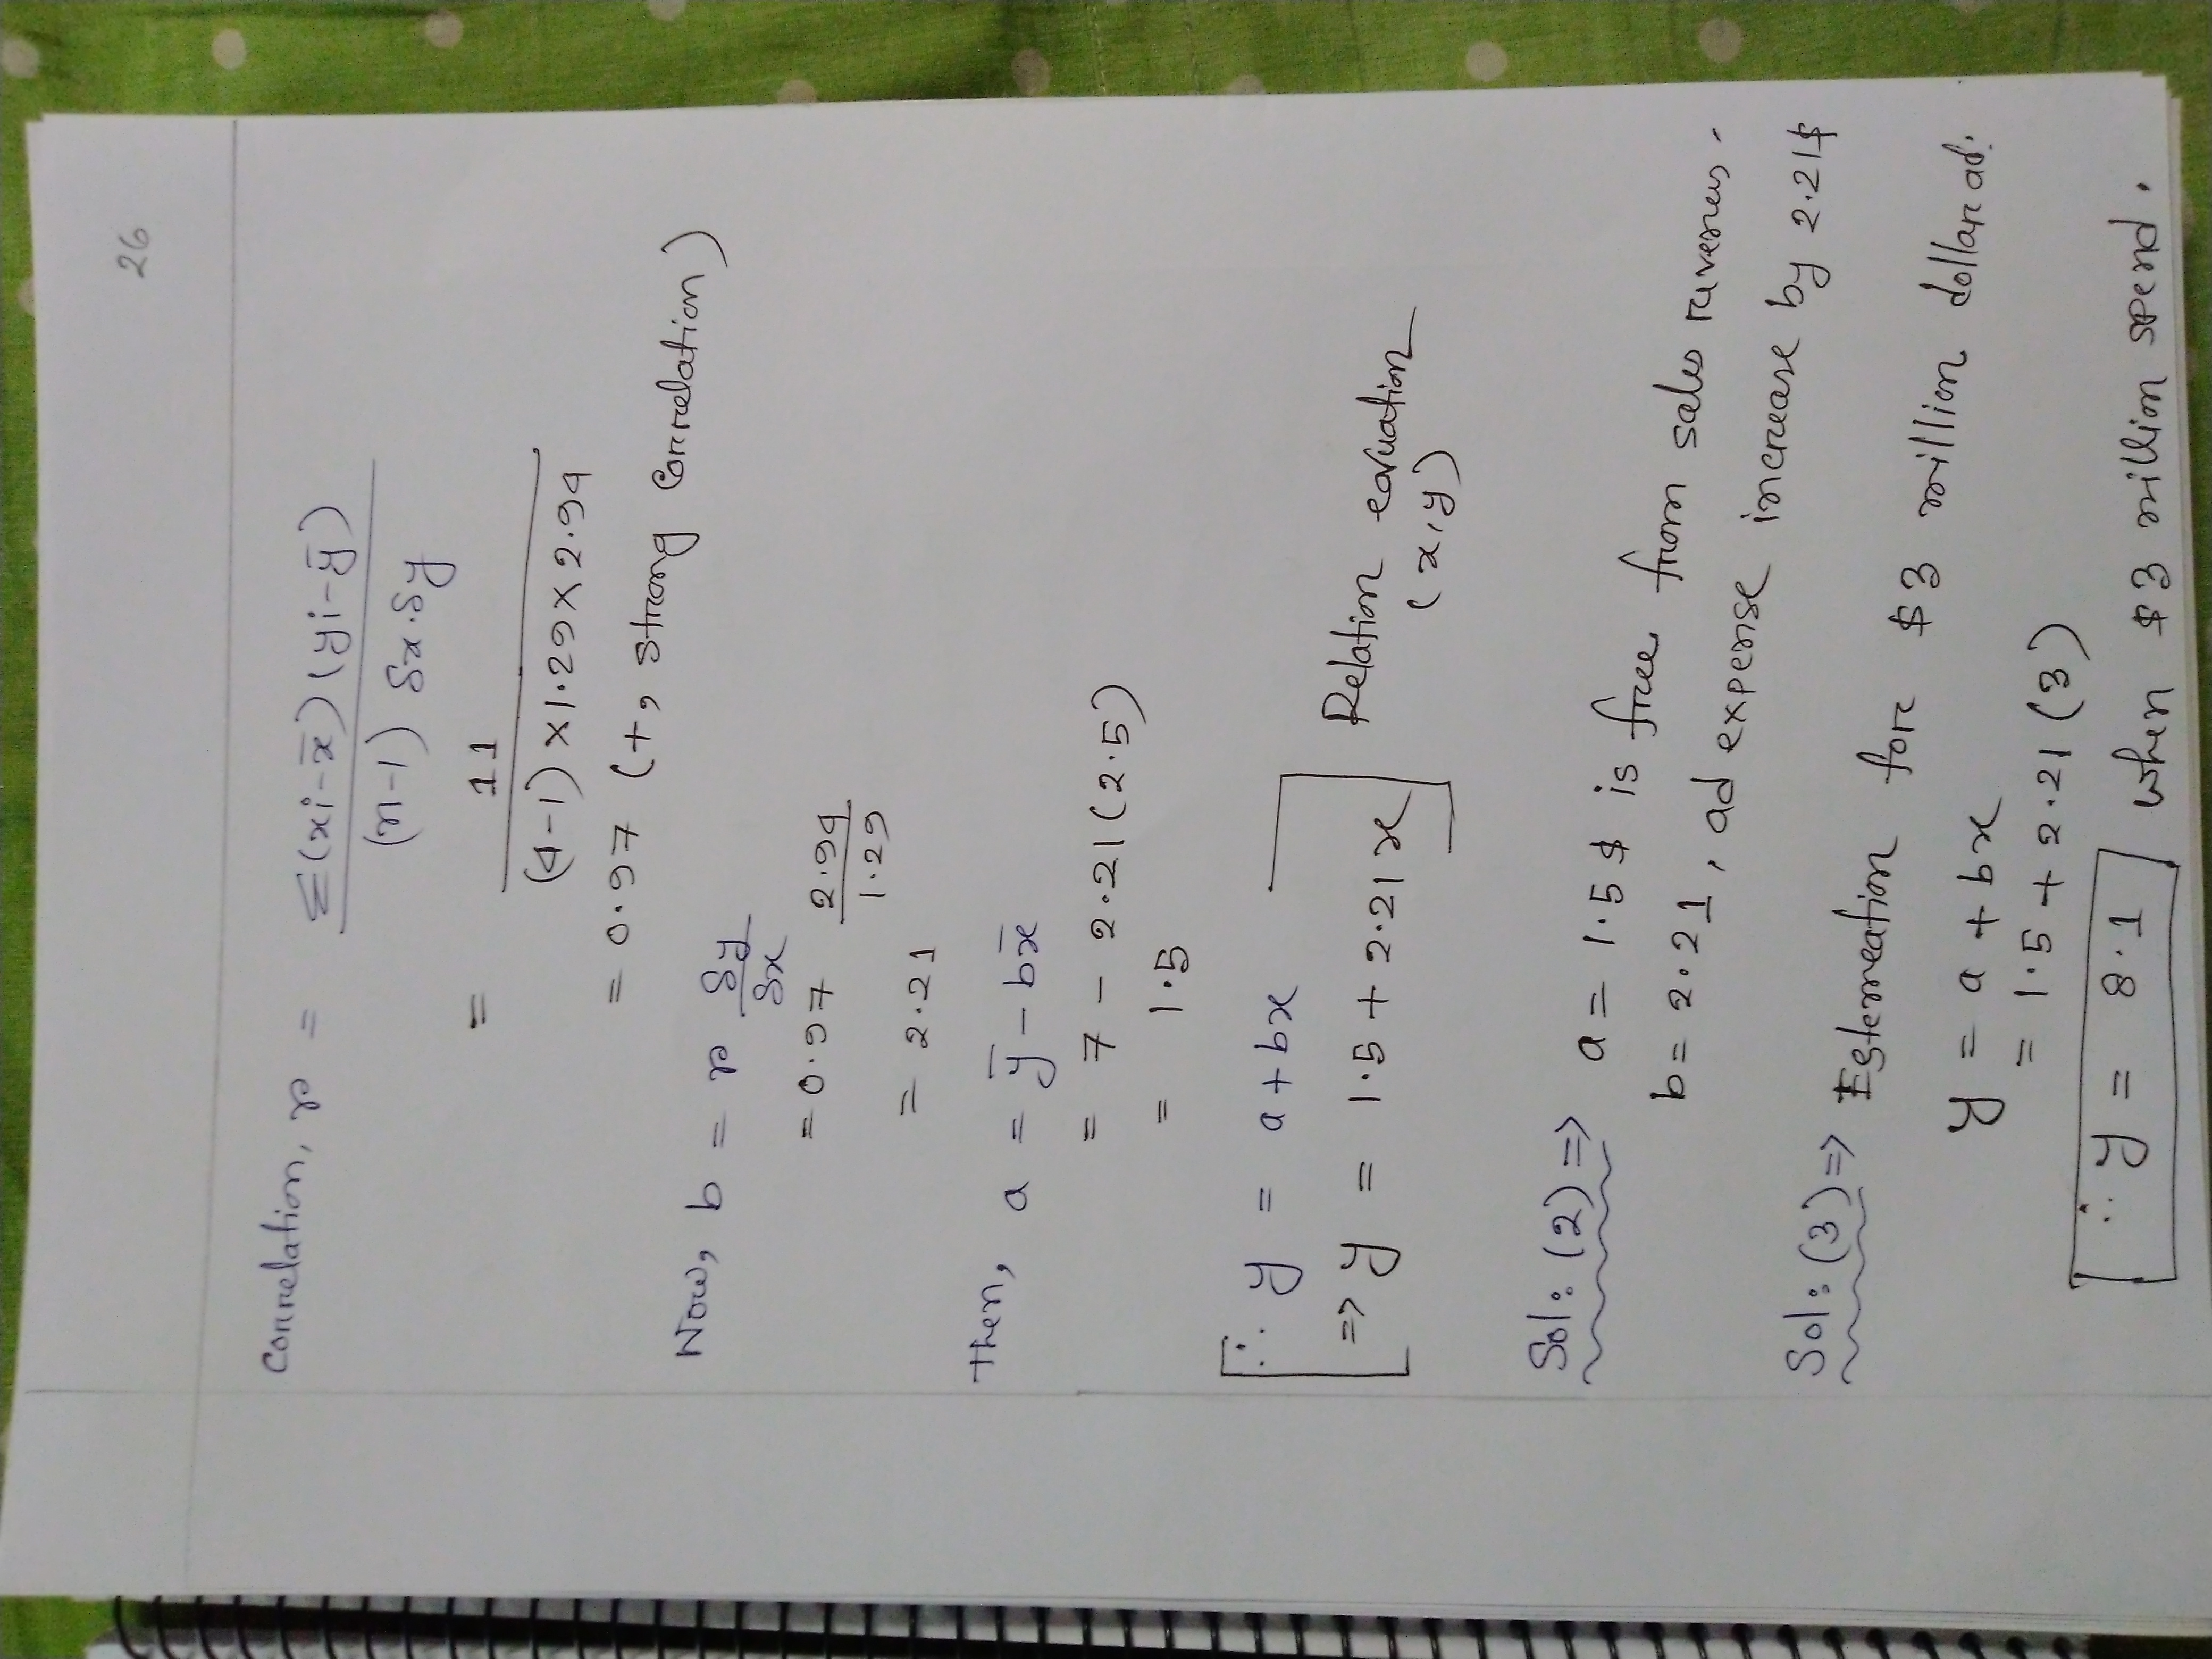 26
Correlation, r = Σ(xi-x̄)(yi-ȳ)
(n-1) Sx.Sy
= 11
(4-1)×1.29×2.94
= 0.97 (+, strong Correlation)
Now, b = r Sy
Sx
= 0.97 2.94
1.29
= 2.21
then, a = ȳ - bx̄
= 7 - 2.21(2.5)
= 1.5
∴ y = a + bx
=> y = 1.5 + 2.21x Relation equation
(x,y)
Sol: (2) => a = 1.5$ is free from sales ruvenus.
b = 2.21, ad expense increase by 2.21$
Sol: (3) => Estemeation for $3 million dollar ad.
y = a + bx
= 1.5 + 2.21(3)
∴ y = 8.1 when $3 million spend.